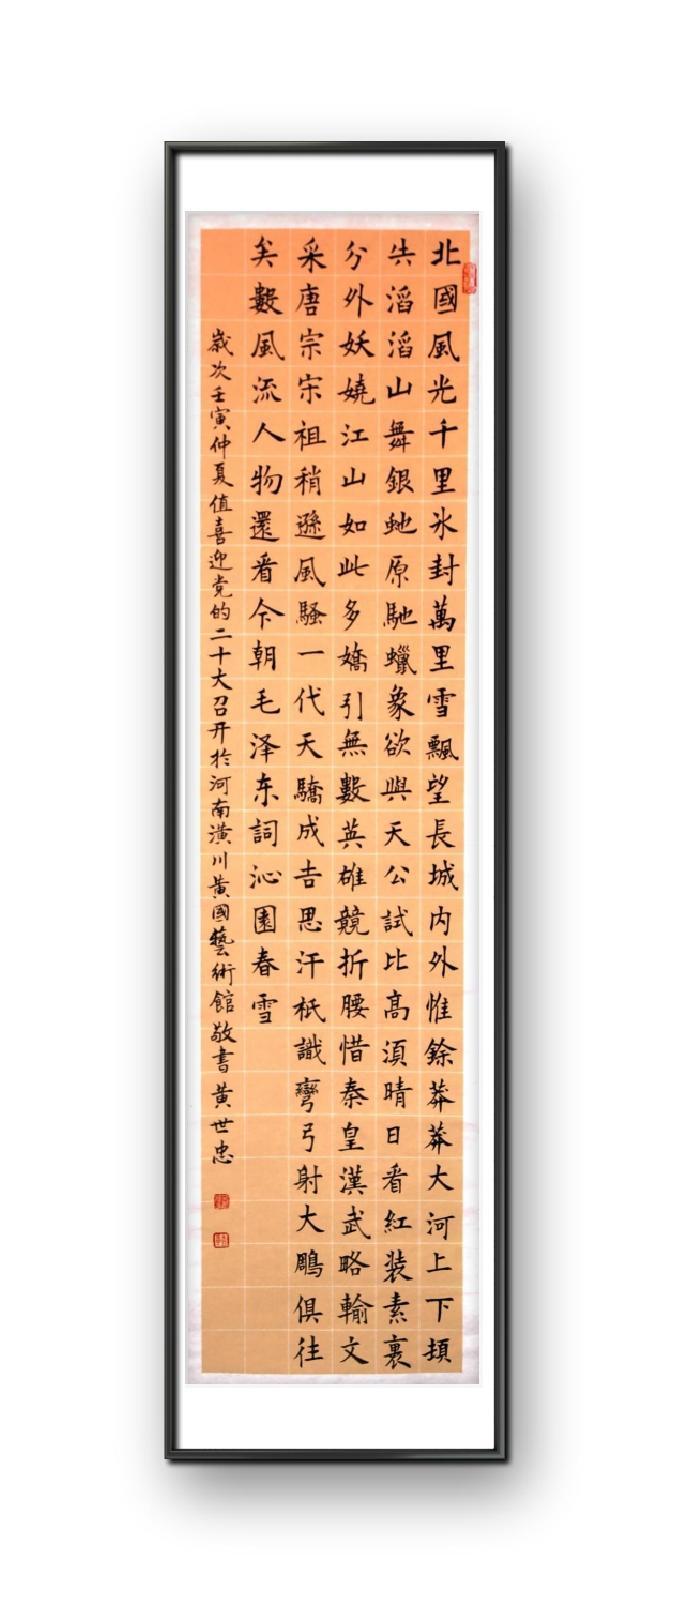 北國風光千里氷封萬里雪飄望長城内外惟餘莽莽大河上下頓
失滔滔山舞銀虵原馳蠟象欲與天公試比高須晴日看紅装素裹
分外妖嬈江山如此多嬌引無數英雄競折腰惜秦皇漢武略輸文
采唐宗宋祖稍遜風騷一代天驕成吉思汗祇識彎弓射大鵰俱往
矣數風流人物還看今朝毛泽东詞沁園春雪
歲次壬寅仲夏值喜迎党的二十大召开於河南潢川黄國藝術館敬書黄世忠